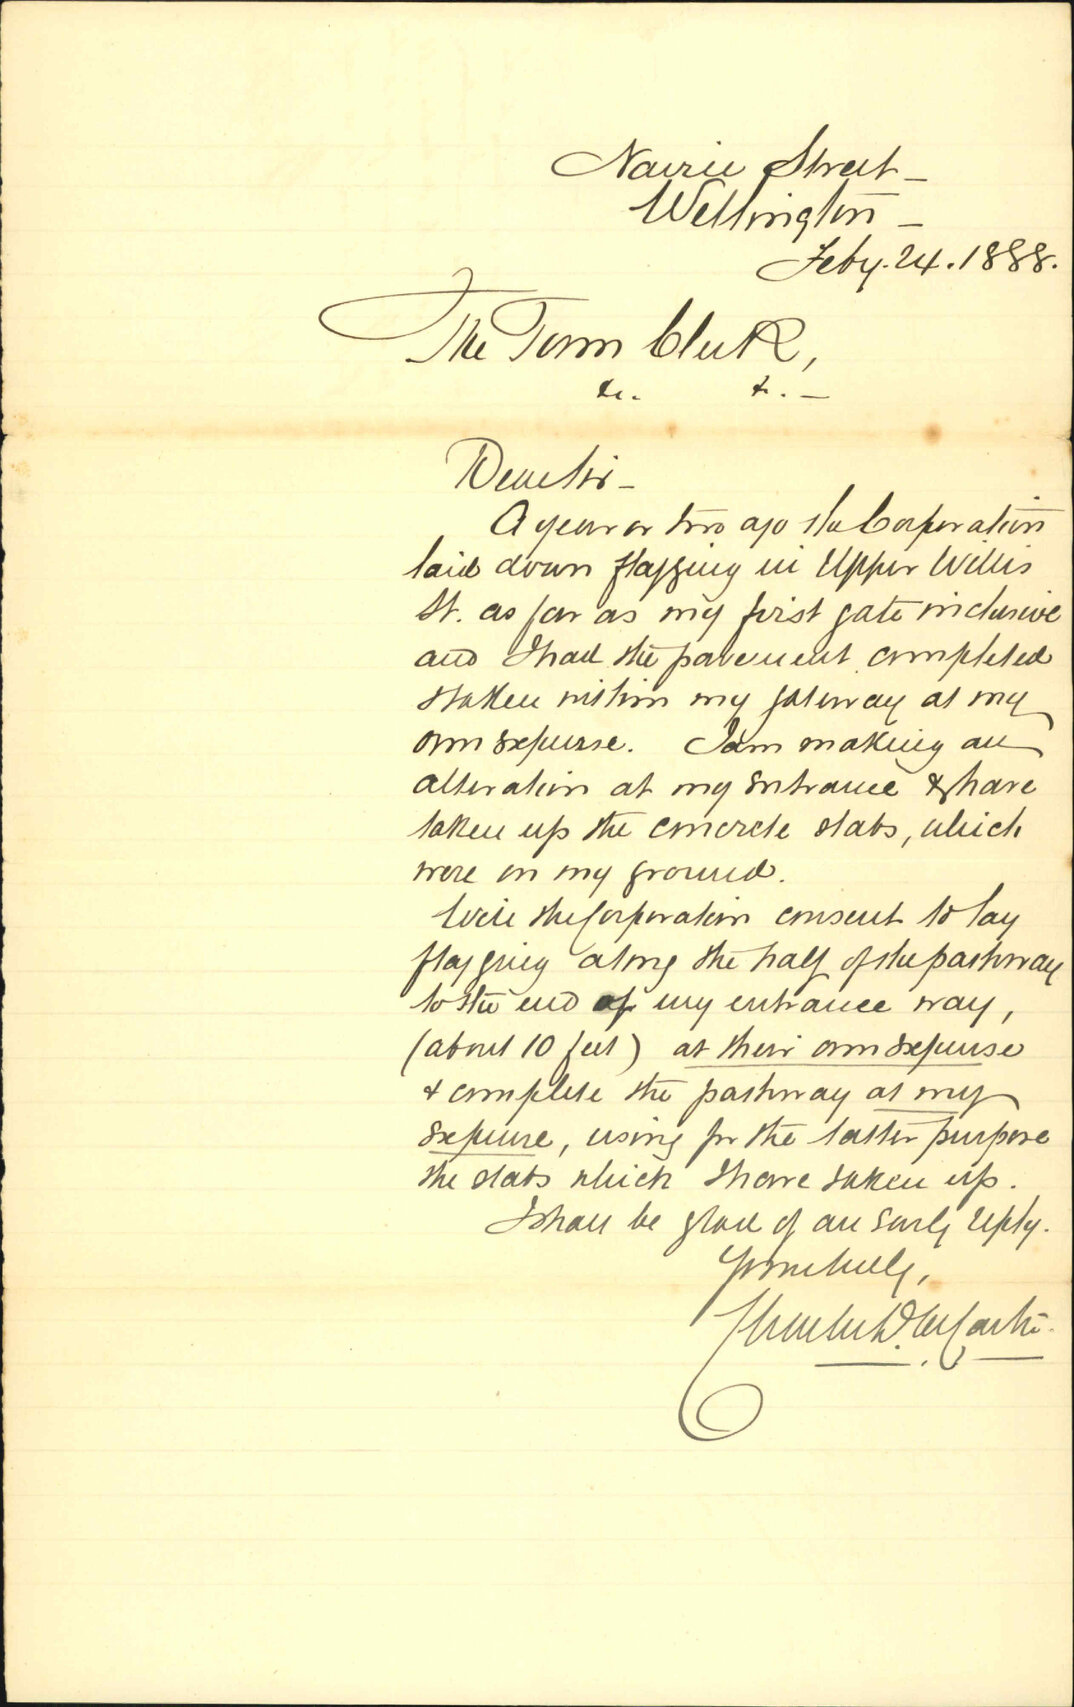 Nairn Street -
Wellington -
Feby. 24. 1888.
The Town Clerk,
&c. &c. -
Dear Sir -
A year or two ago the Corporation
laid down flagging in Upper Willis
St. as far as my first gate inclusive
and I had the pavement completed
& taken within my gateway at my
own expense. I am making an
alteration at my entrance & have
taken up the concrete slabs, which
were on my ground.
Will the Corporation consent to lay
flagging along the half of the pathway
to the end of my entrance way,
(about 10 feet) at their own expense
& complete the pathway at my
expense, using for the latter purpose
the slabs which I have taken up.
I shall be glad of an early reply.
Yours truly,
Charles D.